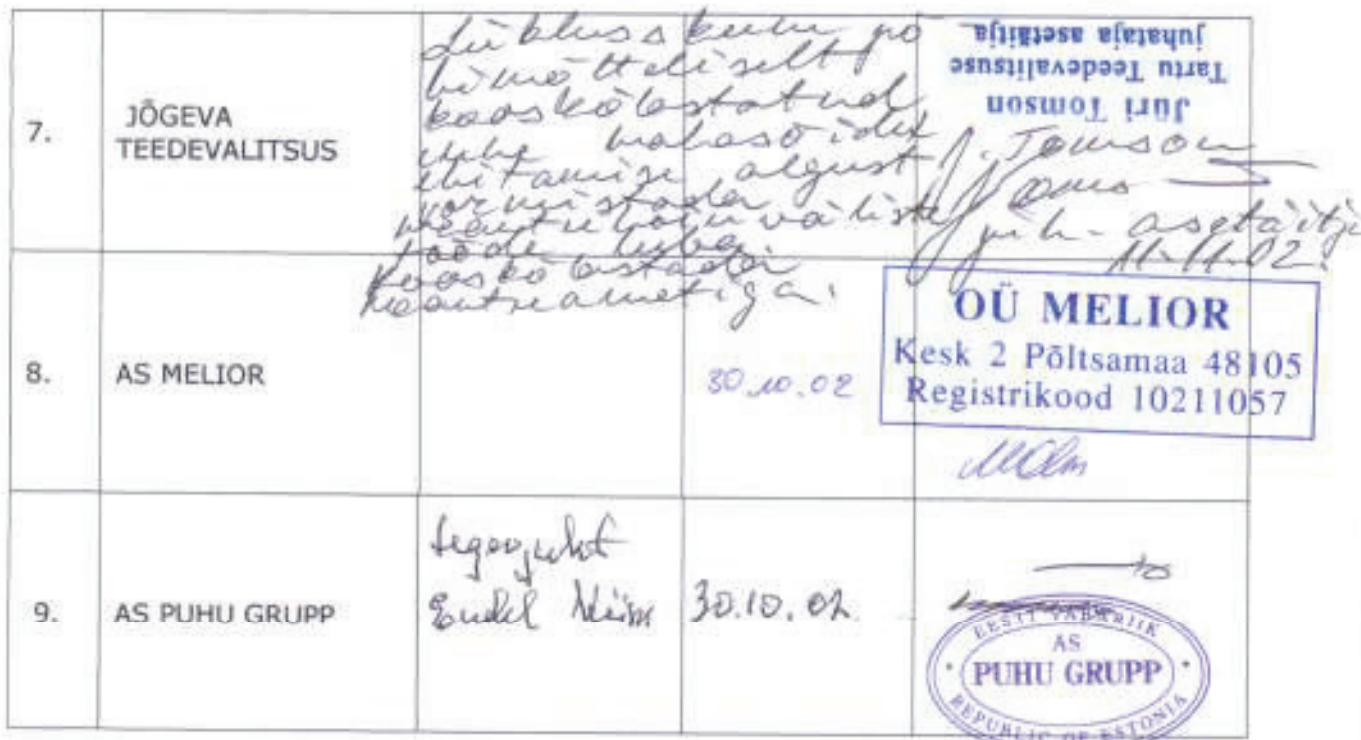 7.
JÕGEVA
TEEDEVALITSUS
kooskõlastatud
mahasõidu
ehitamise algust
vormistada
tööde luba
kooskõlastada
maanteeametiga.
Jüri Tomson
Tartu Teedevalitsuse
juhataja asetäitja
J. Tomson
juh. asetäitja
11.11.02.
8.
AS MELIOR
30.10.02
OÜ MELIOR
Kesk 2 Põltsamaa 48105
Registrikood 10211057
9.
AS PUHU GRUPP
tegevjuht
Endel
30.10.02.
EESTI VABARIIK
AS
PUHU GRUPP
REPUBLIC OF ESTONIA